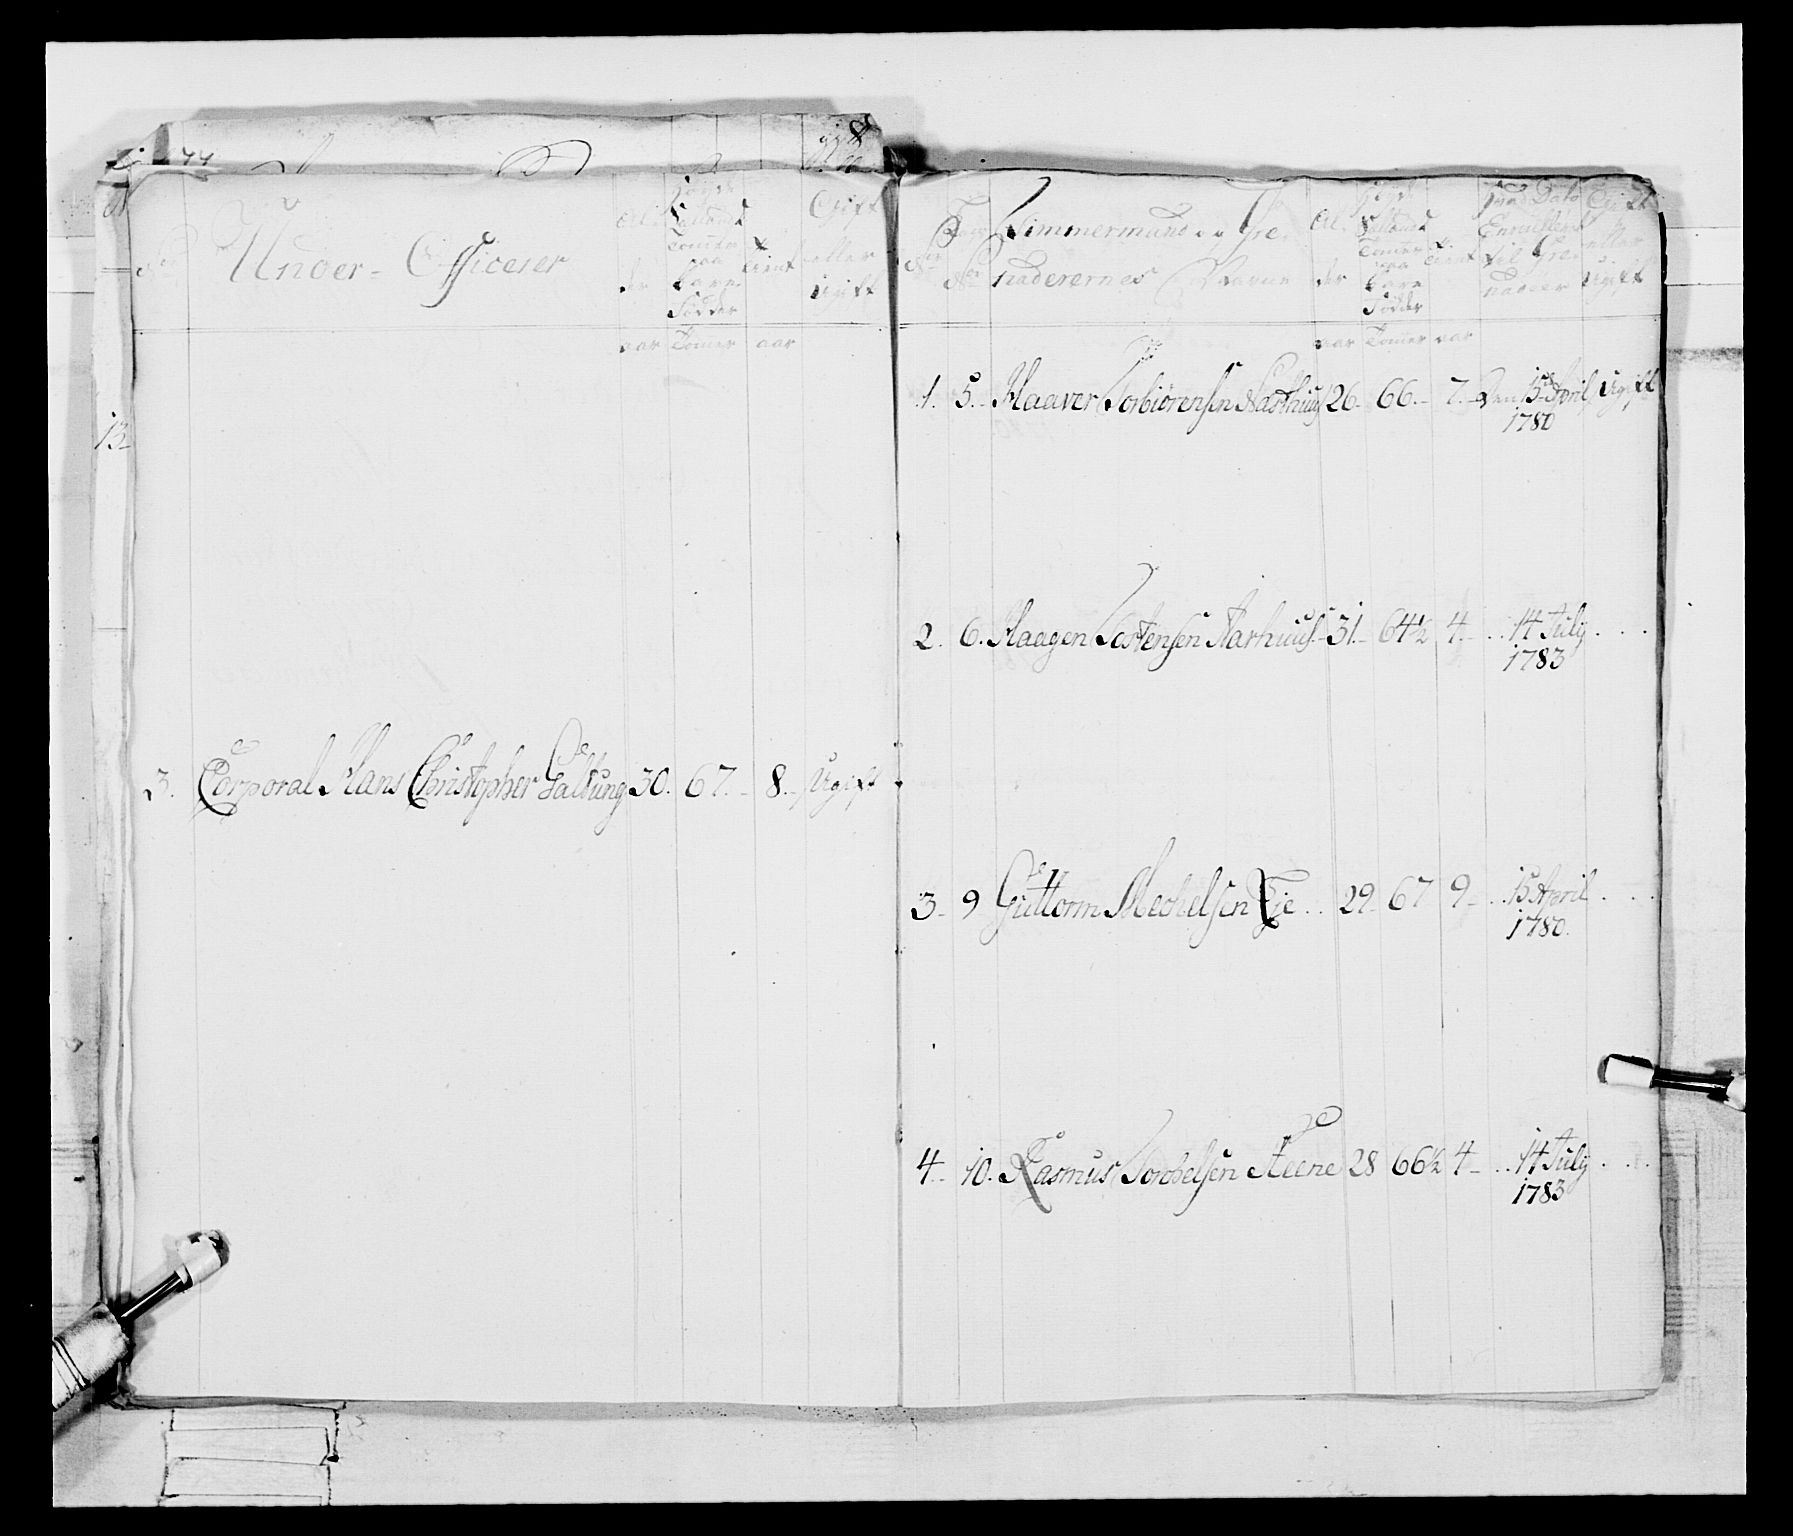 No
Under-Officerer
Al-
der
Høyde
Tommer
paa
bare
Fødder
Tient
Gift
eller
Ugift
aar Tommer aar
13
3. Corporal Hans Christopher Galtung 30. 67. - 8. - Ugift
Timmermand og Gre-
naderernes Navne
Al-
der
Høyde
Tommer
paa
bare
Fødder
Tient
Hvad Dato
Enroullert
til Gre-
nadeer
Gift
eller
Ugift
aar Tommer aar
1. 5. Haaver Torbiörensen Næsthuus 26. 66. - 7. - Den 15de April Ugift
1780
2. 6. Haagen Tostensen Aarhuus. - 31. - 64½ 4. - . . 14 July . . .
1783
3. 9 Guttorm Mechelsen Eje . . 29. 67 9. - . . 15 April . . .
1780.
4. 10. Rasmus Torchelsen Steene 28 66½ 4 - . . 14 July . . .
1783